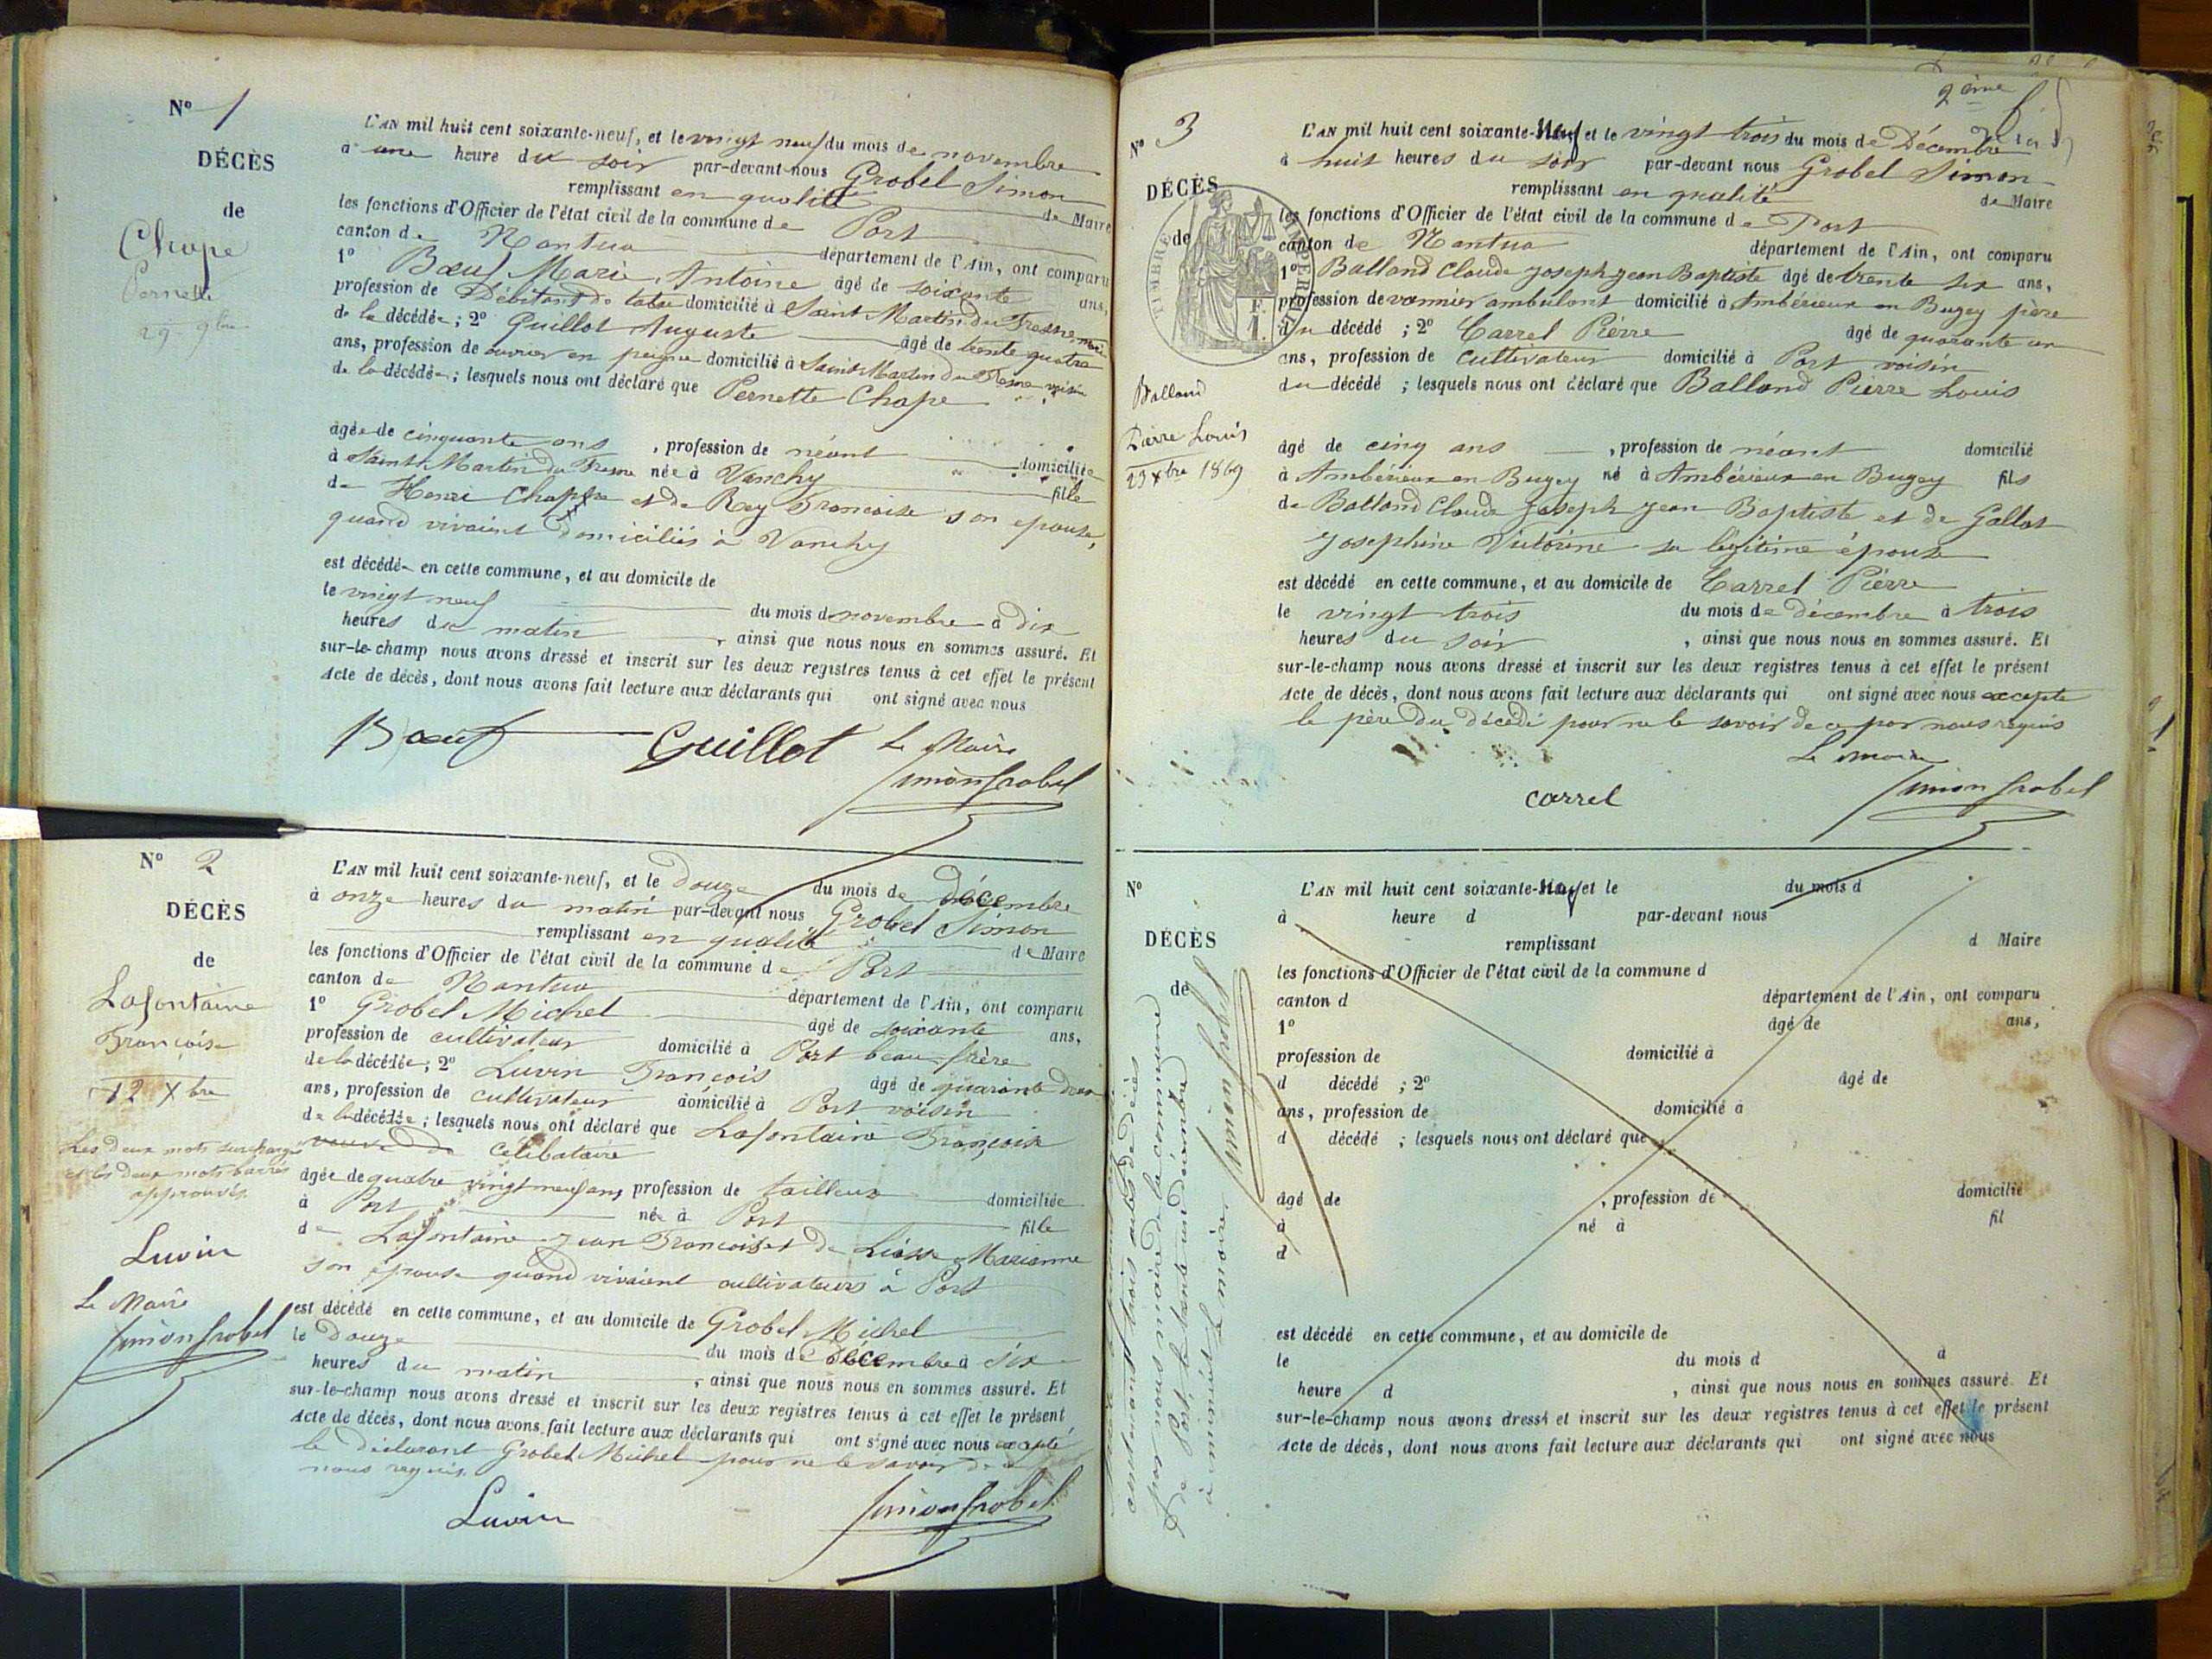 Nº 1
DÉCÈS
de
Chape
Pernette
29 9bre
L'AN mil huit cent soixante-neuf, et le vingt neuf du mois de novembre
à une heure du soir par-devant nous Grobel Simon
remplissant en qualité de Maire
les fonctions d'Officier de l'état civil de la commune de Port
canton de Nantua département de l'Ain, ont comparu
1º Bœuf Marie Antoine âgé de soixante ans,
profession de Débitant de tabac domicilié à Saint Martin du Fresne, mari
de la décédée ; 2º Guillot Auguste âgé de trente quatre
ans, profession de ouvrier en peigne domicilié à Saint Martin du Fresne voisin
de la décédée ; lesquels nous ont déclaré que Pernette Chape
âgée de cinquante ans , profession de néant domiciliée
à Saint Martin du Fresne née à Vanchy fille
de Henri Chappe et de Rey Francoise son épouse,
quand vivaient domiciliés à Vanchy
est décédée en cette commune, et au domicile de
le vingt neuf du mois de novembre à dix
heures du matin , ainsi que nous nous en sommes assuré. Et
sur-le-champ nous avons dressé et inscrit sur les deux registres tenus à cet effet le présent
Acte de décès, dont nous avons fait lecture aux déclarants qui ont signé avec nous
Bœuf Guillot Le Maire
Simon Grobel
Nº 2
DÉCÈS
de
Lafontaine
Francoise
12 Xbre
Les deux mots surchargés
et les deux mots barrés
approuvés.
Luvin
Le Maire
Simon Grobel
L'AN mil huit cent soixante-neuf, et le douze du mois de Décembre
à onze heures du matin par-devant nous Grobel Simon
remplissant en qualité de Maire
les fonctions d'Officier de l'état civil de la commune de Port
canton de Nantua département de l'Ain, ont comparu
1º Grobel Michel âgé de soixante ans,
profession de cultivateur domicilié à Port beau-frère
de la décédée ; 2º Luvin François âgé de quarante deux
ans, profession de cultivateur domicilié à Port voisin
de la décédée ; lesquels nous ont déclaré que Lafontaine Françoise
veuve de célibataire
âgée de quatre vingt neuf ans profession de tailleuse domiciliée
à Port née à Port fille
de Lafontaine Jean Francois et de Marianne
son épouse quand vivaient cultivateurs à Port
est décédé en cette commune, et au domicile de Grobel Michel
le douze du mois de Décembre à six
heures du matin , ainsi que nous nous en sommes assuré. Et
sur-le-champ nous avons dressé et inscrit sur les deux registres tenus à cet effet le présent
Acte de décès, dont nous avons fait lecture aux déclarants qui ont signé avec nous excepté
le déclarant Grobel Michel pour ne le savoir de ce
nous requis.
Luvin Simon Grobel
2ème
Nº 3
DÉCÈS
de
TIMBRE IMPERIAL
Balland
Pierre Louis
23 Xbre 1869
L'AN mil huit cent soixante-Neuf et le vingt trois du mois de Décembre
à huit heures du soir par-devant nous Grobel Simon
remplissant en qualité de Maire
les fonctions d'Officier de l'état civil de la commune de Port
canton de Nantua département de l'Ain, ont comparu
1º Balland Claude Joseph Jean Baptiste âgé de trente six ans,
profession de vannier ambulant domicilié à Ambérieux en Bugey père
du décédé ; 2º Carrel Pierre âgé de quarante un
ans, profession de cultivateur domicilié à Port voisin
du décédé ; lesquels nous ont déclaré que Balland Pierre Louis
âgé de cinq ans , profession de néant domicilié
à Ambérieux en Bugey né à Ambérieux en Bugey fils
de Balland Claude Joseph Jean Baptiste et de Gallat
Josephine Victorine sa légitime épouse
est décédé en cette commune, et au domicile de Carrel Pierre
le vingt trois du mois de décembre à trois
heures du soir , ainsi que nous nous en sommes assuré. Et
sur-le-champ nous avons dressé et inscrit sur les deux registres tenus à cet effet le présent
Acte de décès, dont nous avons fait lecture aux déclarants qui ont signé avec nous excepté
le père du décédé pour ne le savoir de ce par nous requis
Le maire
carrel Simon Grobel
Nº
DÉCÈS
de
L'AN mil huit cent soixante-Neuf et le du mois d
à heure d par-devant nous
remplissant d Maire
les fonctions d'Officier de l'état civil de la commune d
canton d département de l'Ain, ont comparu
1º âgé de ans,
profession de domicilié à
d décédé ; 2º âgé de
ans, profession de domicilié à
d décédé ; lesquels nous ont déclaré que
âgé de , profession de domicilié
à né à fil
d
est décédé en cette commune, et au domicile de
le du mois d à
heure d , ainsi que nous nous en sommes assuré. Et
sur-le-champ nous avons dressé et inscrit sur les deux registres tenus à cet effet le présent
Acte de décès, dont nous avons fait lecture aux déclarants qui ont signé avec nous
contenant trois actes de décès
par nous maire de la commune
de Port, le trente un décembre
à minuit. Le maire
Simon Grobel